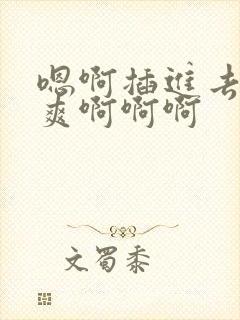 嗯啊插进去
爽啊啊啊
文蜀黍